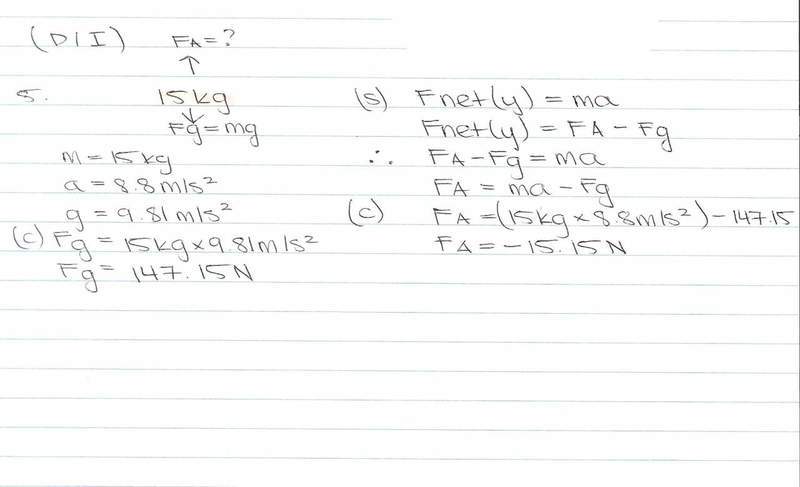 (D/I) FA = ?
↑
5. 15 kg
↓
Fg = mg
m = 15 kg
a = 8.8 m/s²
g = 9.81 m/s²
(c) Fg = 15kg × 9.81 m/s²
Fg = 147.15 N
(s) Fnet(y) = ma
Fnet(y) = FA - Fg
∴ FA - Fg = ma
FA = ma - Fg
(c) FA = (15kg × 8.8 m/s²) - 147.15
FA = -15.15 N